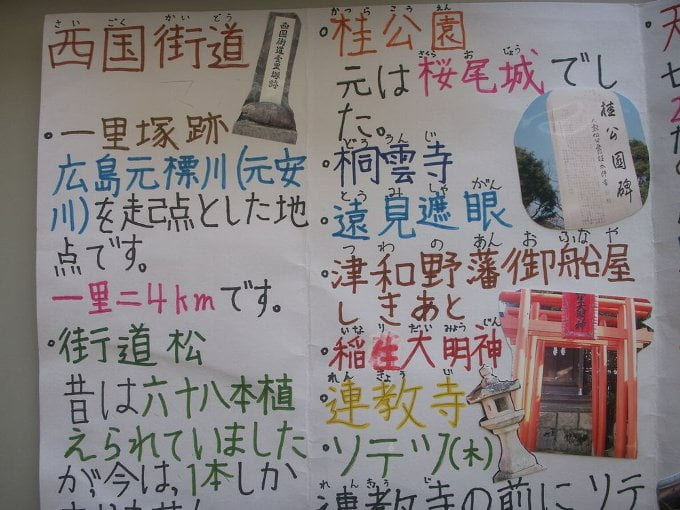 さいごくかいどう
西国街道
西国街道一里塚跡
・一里塚跡
広島元標川(元安
川)を起点とした地
点です。
一里=4kmです。
・街道松
昔は六十八本植
えられていました
が、今は、1本しか
かつらこうえん
・桂公園
さくらおじょう
元は桜尾城でし
た。
とううんじ
・桐雲寺
とうみしゃがん
・遠見遮眼
つわのあんおふなや
・津和野藩御船屋
しきあと
いなりだいみょうじん
・稲生大明神
れんきょうじ
・連教寺
ソテツ(木)
れんきょうじ
連教寺の前にソテ
桂公園碑